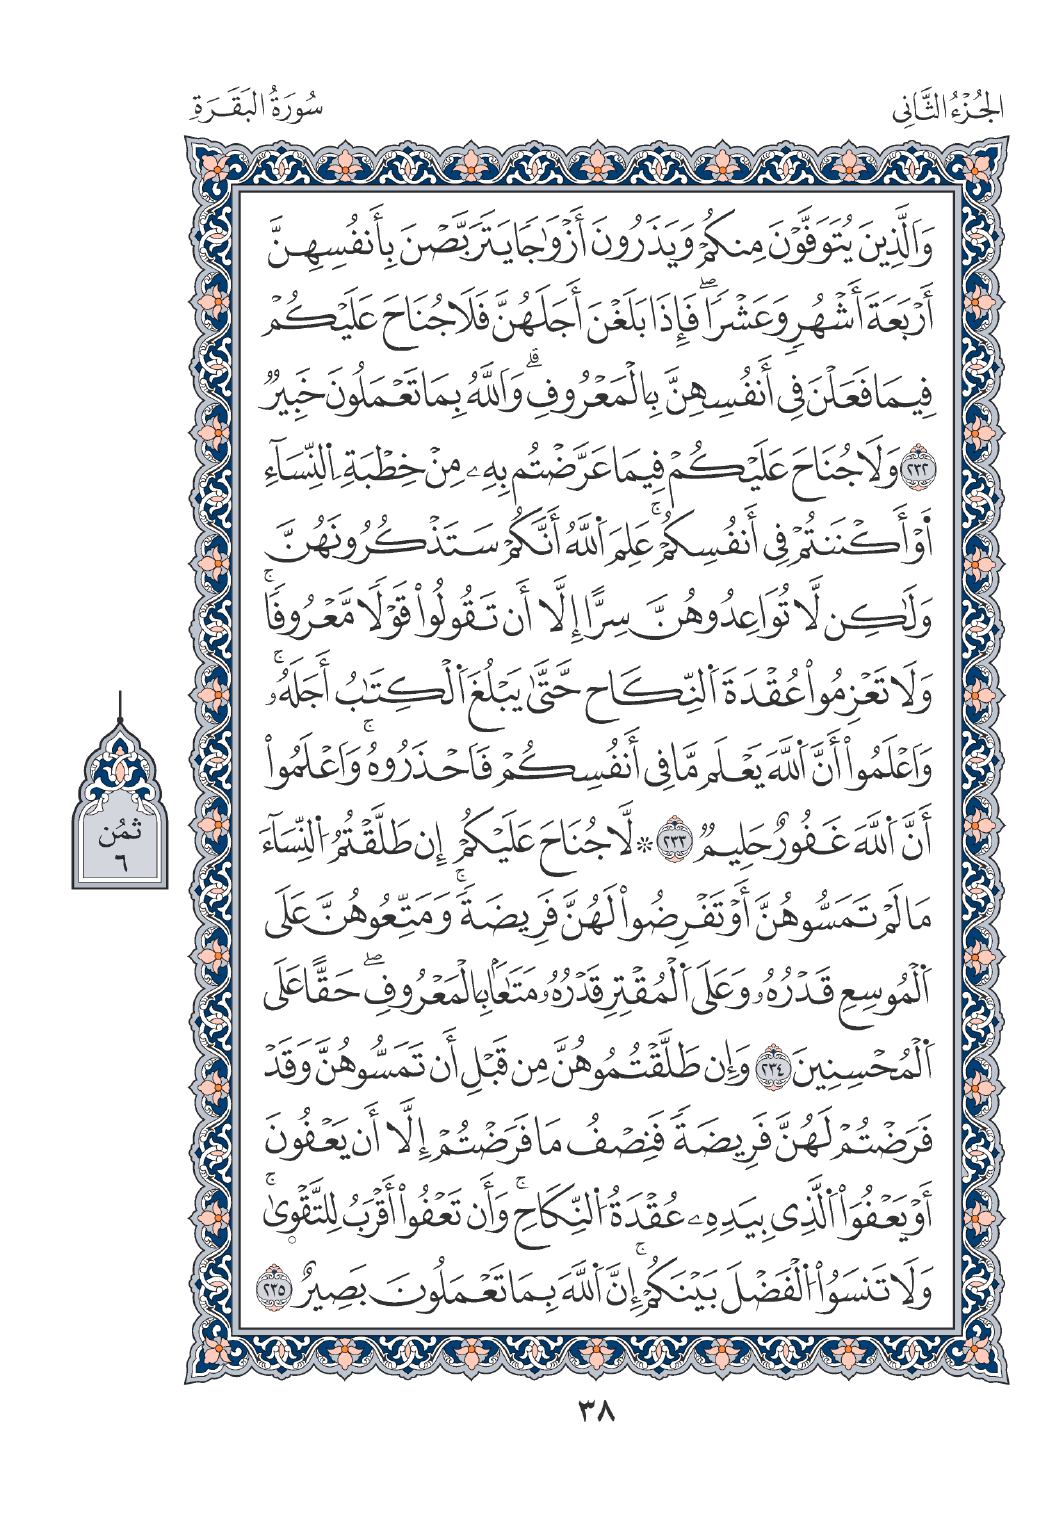 الجُزْءُ الثَّانِي
سُورَةُ البَقَرَةِ
وَالَّذِينَ يُتَوَفَّوْنَ مِنكُمْ وَيَذَرُونَ أَزْوَٰجٗا يَتَرَبَّصْنَ بِأَنفُسِهِنَّ
أَرْبَعَةَ أَشْهُرٖ وَعَشْرٗاۖ فَإِذَا بَلَغْنَ أَجَلَهُنَّ فَلَا جُنَاحَ عَلَيْكُمْ
فِيمَا فَعَلْنَ فِي أَنفُسِهِنَّ بِالْمَعْرُوفِۗ وَاَللَّهُ بِمَا تَعْمَلُونَ خَبِيرٞ
٢٣٢ وَلَا جُنَاحَ عَلَيْكُمْ فِيمَا عَرَّضْتُم بِهِۦ مِنْ خِطْبَةِ اِ۬لنِّسَآءِ
اَوْ أَكْنَنتُمْ فِي أَنفُسِكُمْۚ عَلِمَ اَ۬للَّهُ أَنَّكُمْ سَتَذْكُرُونَهُنَّ
وَلَٰكِن لَّا تُوَاعِدُوهُنَّ سِرًّا إِلَّا أَن تَقُولُواْ قَوْلٗا مَّعْرُوفٗاۚ
وَلَا تَعْزِمُواْ عُقْدَةَ اَ۬لنِّكَاحِ حَتَّىٰ يَبْلُغَ اَ۬لْكِتَٰبُ أَجَلَهُۥۚ
وَاَعْلَمُواْ أَنَّ اَ۬للَّهَ يَعْلَم مَّا فِي أَنفُسِكُمْ فَاَحْذَرُوهُۚ وَاَعْلَمُواْ
أَنَّ اَ۬للَّهَ غَفُورٌ حَلِيمٞ ٢٣٣ ۞ لَّا جُنَاحَ عَلَيْكُمْ إِن طَلَّقْتُمُ اُ۬لنِّسَآءَ
مَا لَمْ تَمَسُّوهُنَّ أَوْ تَفْرِضُواْ لَهُنَّ فَرِيضَةٗۚ وَمَتِّعُوهُنَّ عَلَى
اَ۬لْمُوسِعِ قَدْرُهُۥ وَعَلَى اَ۬لْمُقْتِرِ قَدْرُهُۥ مَتَٰعَۢا بِالْمَعْرُوفِۖ حَقًّا عَلَى
اَ۬لْمُحْسِنِينَ ٢٣٤ وَإِن طَلَّقْتُمُوهُنَّ مِن قَبْلِ أَن تَمَسُّوهُنَّ وَقَدْ
فَرَضْتُمْ لَهُنَّ فَرِيضَةٗ فَنِصْفُ مَا فَرَضْتُمْ إِلَّا أَن يَعْفُونَ
أَوْ يَعْفُوَاْ اَ۬لَّذِي بِيَدِهِۦ عُقْدَةُ اُ۬لنِّكَاحِۚ وَأَن تَعْفُواْ أَقْرَبُ لِلتَّقْوِىٰۚ
وَلَا تَنسَوُاْ اُ۬لْفَضْلَ بَيْنَكُمْۚ إِنَّ اَ۬للَّهَ بِمَا تَعْمَلُونَ بَصِيرٌ ٢٣٥
ثمُن
٦
٣٨